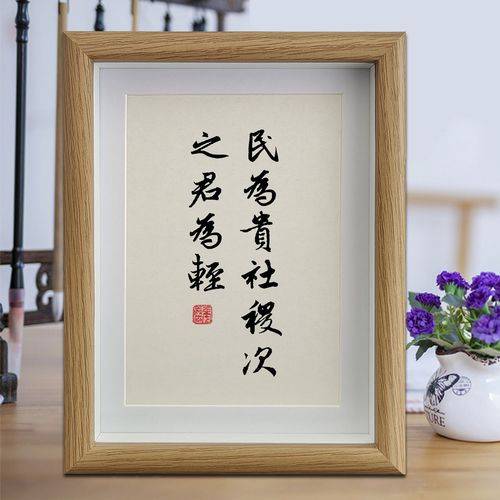 民為貴社稷次
之君為輕
NATURE